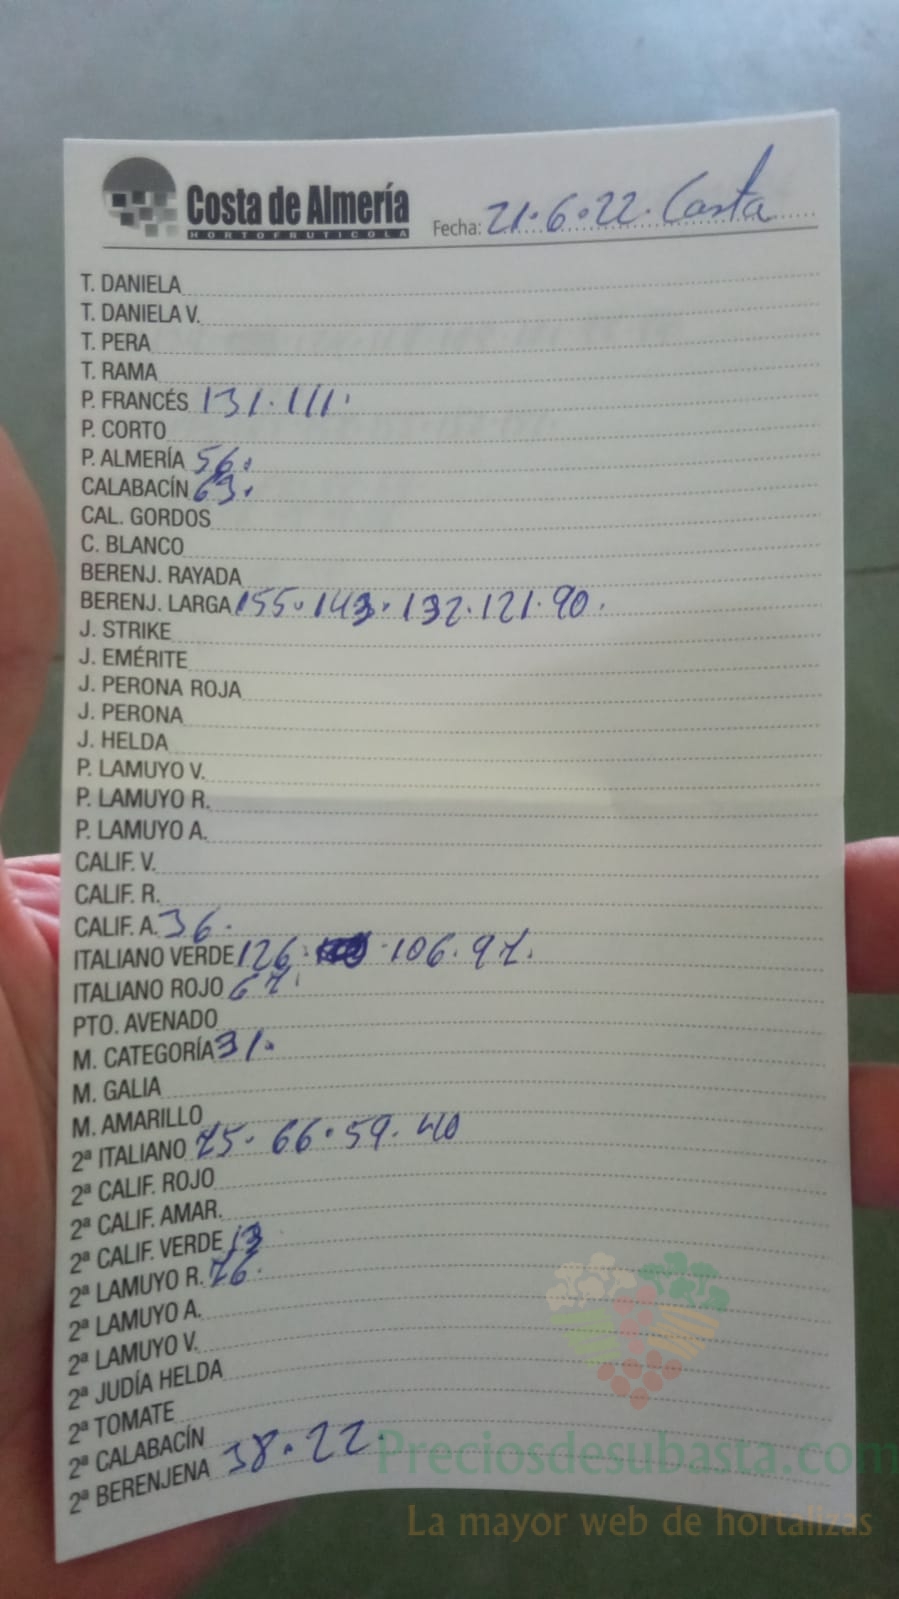 Costa de Almería
HORTOFRUTICOLA
Fecha: 21.6.22. Costa
T. DANIELA
T. DANIELA V.
T. PERA
T. RAMA
P. FRANCÉS 131.111.
P. CORTO
P. ALMERÍA 56.
CALABACÍN 63.
CAL. GORDOS
C. BLANCO
BERENJ. RAYADA
BERENJ. LARGA 155.143.132.121.90.
J. STRIKE
J. EMÉRITE
J. PERONA ROJA
J. PERONA
J. HELDA
P. LAMUYO V.
P. LAMUYO R.
P. LAMUYO A.
CALIF. V.
CALIF. R.
CALIF. A. 36.
ITALIANO VERDE 126. 106.97.
ITALIANO ROJO 67.
PTO. AVENADO
M. CATEGORÍA 31.
M. GALIA
M. AMARILLO
2ª ITALIANO 75.66.59.40
2ª CALIF. ROJO
2ª CALIF. AMAR.
2ª CALIF. VERDE 13
2ª LAMUYO R. 76.
2ª LAMUYO A.
2ª LAMUYO V.
2ª JUDÍA HELDA
2ª TOMATE
2ª CALABACÍN
2ª BERENJENA 38.22.
Preciosdesubasta.com
La mayor web de hortalizas